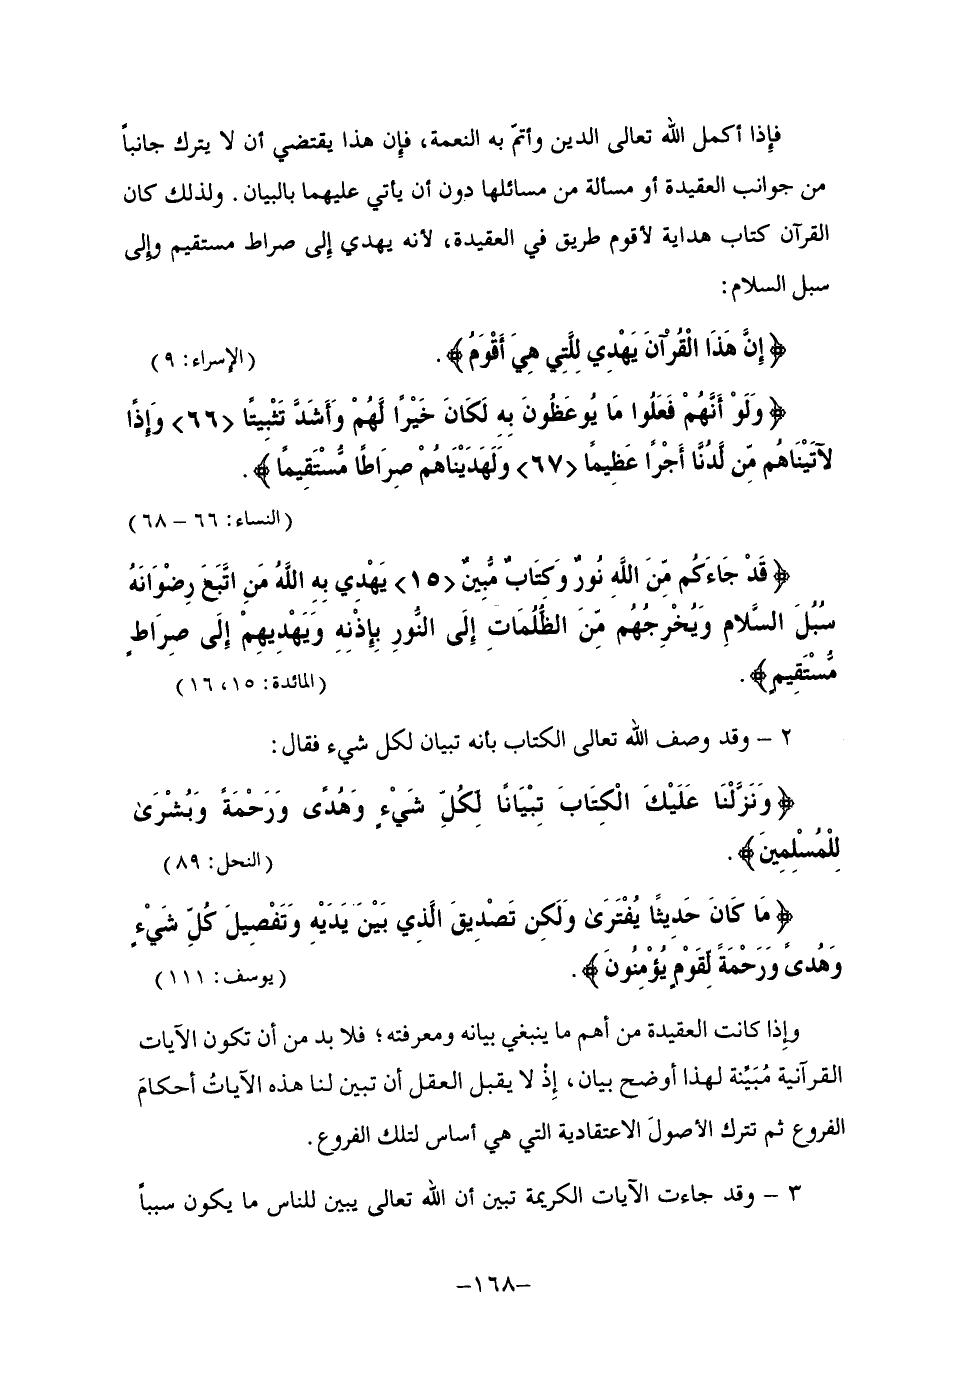 فإذا أكمل الله تعالى الدين وأتمّ به النعمة، فإن هذا يقتضي أن لا يترك جانباً
من جوانب العقيدة أو مسألة من مسائلها دون أن يأتي عليهما بالبيان. ولذلك كان
القرآن كتاب هداية لأقوم طريق في العقيدة، لأنه يهدي إلى صراط مستقيم وإلى
سبل السلام:
﴿إِنَّ هَذَا الْقُرْآنَ يَهْدِي لِلَّتِي هِيَ أَقْوَمُ﴾. (الإسراء: ٩)
﴿وَلَوْ أَنَّهُمْ فَعَلُوا مَا يُوعَظُونَ بِهِ لَكَانَ خَيْرًا لَّهُمْ وَأَشَدَّ تَثْبِيتًا <٦٦> وَإِذًا
لآتَيْنَاهُم مِّن لَّدُنَّا أَجْرًا عَظِيمًا <٦٧> وَلَهَدَيْنَاهُمْ صِرَاطًا مُّسْتَقِيمًا﴾.
(النساء: ٦٦ – ٦٨)
﴿قَدْ جَاءَكُم مِّنَ اللَّهِ نُورٌ وَكِتَابٌ مُّبِينٌ <١٥> يَهْدِي بِهِ اللَّهُ مَنِ اتَّبَعَ رِضْوَانَهُ
سُبُلَ السَّلامِ وَيُخْرِجُهُم مِّنَ الظُّلُمَاتِ إِلَى النُّورِ بِإِذْنِهِ وَيَهْدِيهِمْ إِلَى صِرَاطٍ
مُّسْتَقِيمٍ﴾. (المائدة: ١٥، ١٦)
٢ – وقد وصف الله تعالى الكتاب بأنه تبيان لكل شيء فقال:
﴿وَنَزَّلْنَا عَلَيْكَ الْكِتَابَ تِبْيَانًا لِّكُلِّ شَيْءٍ وَهُدًى وَرَحْمَةً وَبُشْرَىٰ
لِلْمُسْلِمِينَ﴾. (النحل: ٨٩)
﴿مَا كَانَ حَدِيثًا يُفْتَرَىٰ وَلَكِن تَصْدِيقَ الَّذِي بَيْنَ يَدَيْهِ وَتَفْصِيلَ كُلِّ شَيْءٍ
وَهُدىً وَرَحْمَةً لِّقَوْمٍ يُؤْمِنُونَ﴾. (يوسف: ١١١)
وإذا كانت العقيدة من أهم ما ينبغي بيانه ومعرفته؛ فلا بد من أن تكون الآيات
القرآنية مُبَيِّنة لهذا أوضح بيان، إذْ لا يقبل العقل أن تبين لنا هذه الآياتُ أحكامَ
الفروع ثم تترك الأصولَ الاعتقادية التي هي أساس لتلك الفروع.
٣ – وقد جاءت الآيات الكريمة تبين أن الله تعالى يبين للناس ما يكون سبباً
–١٦٨–